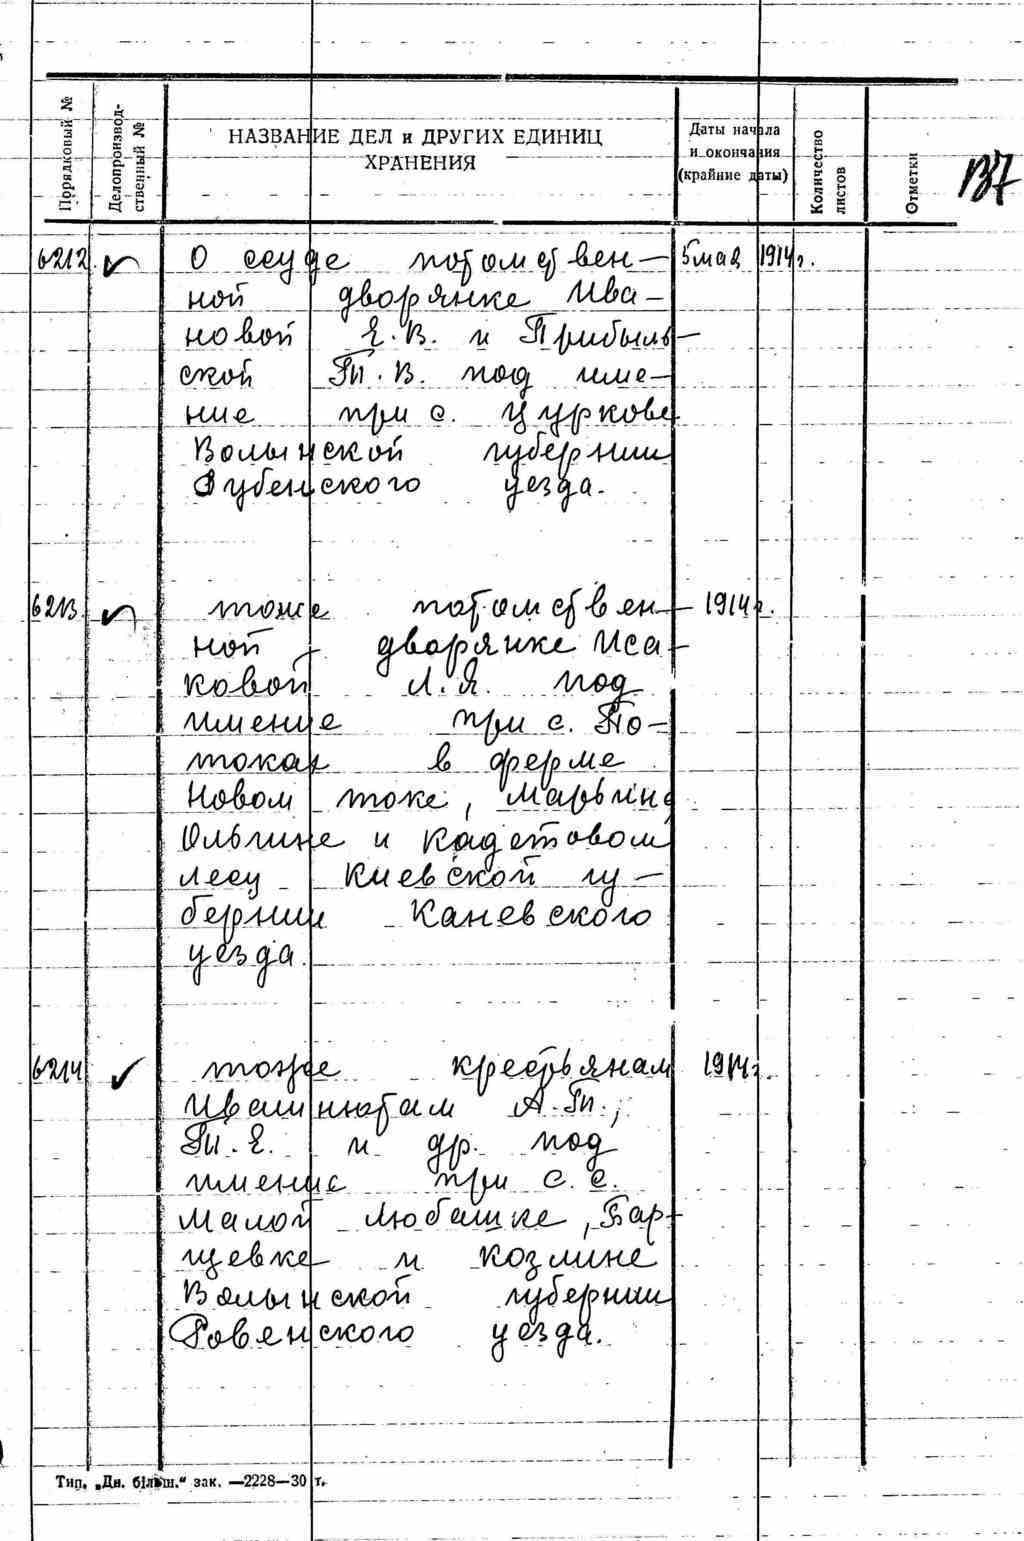 Порядковый №
Делопроизвод-
ственный №
НАЗВАНИЕ ДЕЛ и ДРУГИХ ЕДИНИЦ
ХРАНЕНИЯ
Даты начала
и окончания
(крайние даты)
Количество
листов
Отметки
137
6212. О ссуде потомствен- 5 мая 1914 г.
ной дворянке Ива-
новой Е.В. и Прибыль-
ской П.В. под име-
ние при с. Цуркове
Волынской губернии
Дубенского уезда.
6213. тоже потомствен- 1914 г.
ной дворянке Иса-
ковой Л.Я. под
имение при с. По-
токах в ферме
Новом токе, Марьине
Ольгине и Кадетовом
лесу Киевской гу-
бернии Каневского
уезда.
6214 тоже крестьянам 1914 г.
А.П.,
П.Е. и др. под
имение при с.с.
Малой Любашке, Бар-
щевке и Козлине
Волынской губернии
Ровенского уезда.
Тип. „Дн. більш." зак. —2228—30 т.